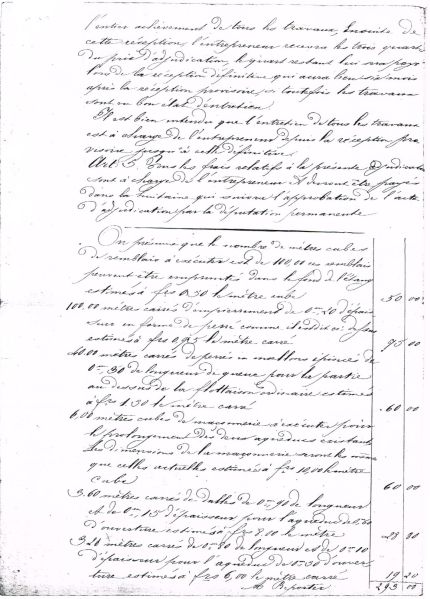 l'entier achèvement de tous les travaux. Ensuite de
cette réception l'entrepreneur recevra les trois quarts
du prix d'adjudication, le quart restant lui sera payé
lors de la réception définitive qui aura lieu six mois
après la réception provisoire si toutefois les travaux
sont en bon état d'entretien.
Il est bien entendu que l'entretien de tous les travaux
est à charge de l'entrepreneur depuis la réception pro
visoire jusqu'à celle définitive.
Art. 5 Tous les frais relatifs à la présente adjudication
sont à charge de l'entrepreneur. Ils devront être payés
dans la huitaine qui suivra l'approbation de l'acte
d'adjudication par la députation permanente
On présume que le nombre de mètres cubes
de remblais à exécuter est de 100,00 ces remblais
peuvent être empruntés dans le fond de l'étang
estimés à frs 0,50 le mètre cube 50 00
100,00 mètres carrés d'empierrement de 0m 20 d'épais
seur en forme de perré comme il est dit ci-dessus
estimés à frs 0,95 le mètre carré 95 00
40,00 mètres carrés de perrés en moellons épincés de
0m,30 de longueur de queue pour la partie
au dessus de la flottaison ordinaire estimés
à frs 1.50 le mètre carré 60 00
6,00 mètres cubes de maçonnerie à exécuter pour
le prolongement des deux aqueducs existants
Les dimensions de la maçonnerie seront les mêmes
que celles actuelles estimés à frs 10,00 le mètre
cube 60 00
3,60 mètres carrés de dalles de 0m 90 de longueur
et de 0m,15 d'épaisseur pour l'aqueduc de
d'ouverture estimés à frs 8,00 le mètre 28 80
3,20 mètres carrés de 0m 80 de longueur et de 0m 10
d'épaisseur pour l'aqueduc de 0m 50 d'ouver
ture estimés à frs 6,00 le mètre carré 19 20
A Reporter 293 00